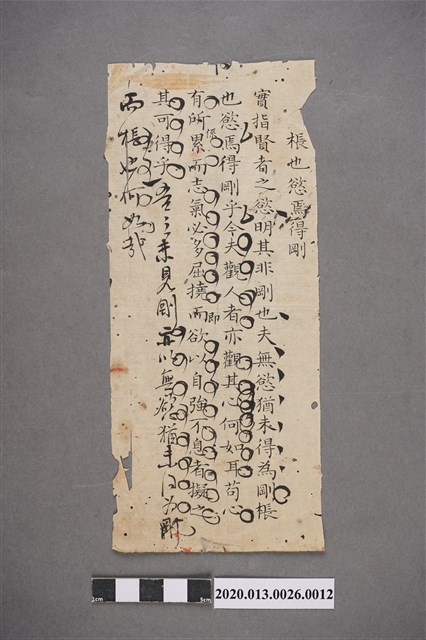 棖也慾焉得剛
實指賢者之慾明其非剛也夫無慾猶未得為剛棖
也慾焉得剛乎今夫觀人者亦觀其心何如耳苟心
有所累而志氣必多屈撓而欲以自強不息者擬之
其可得乎吾之未見剛亦以無慾猶未得為剛
而棖也何如哉
係
即
1cm
5cm
2020.013.0026.0012